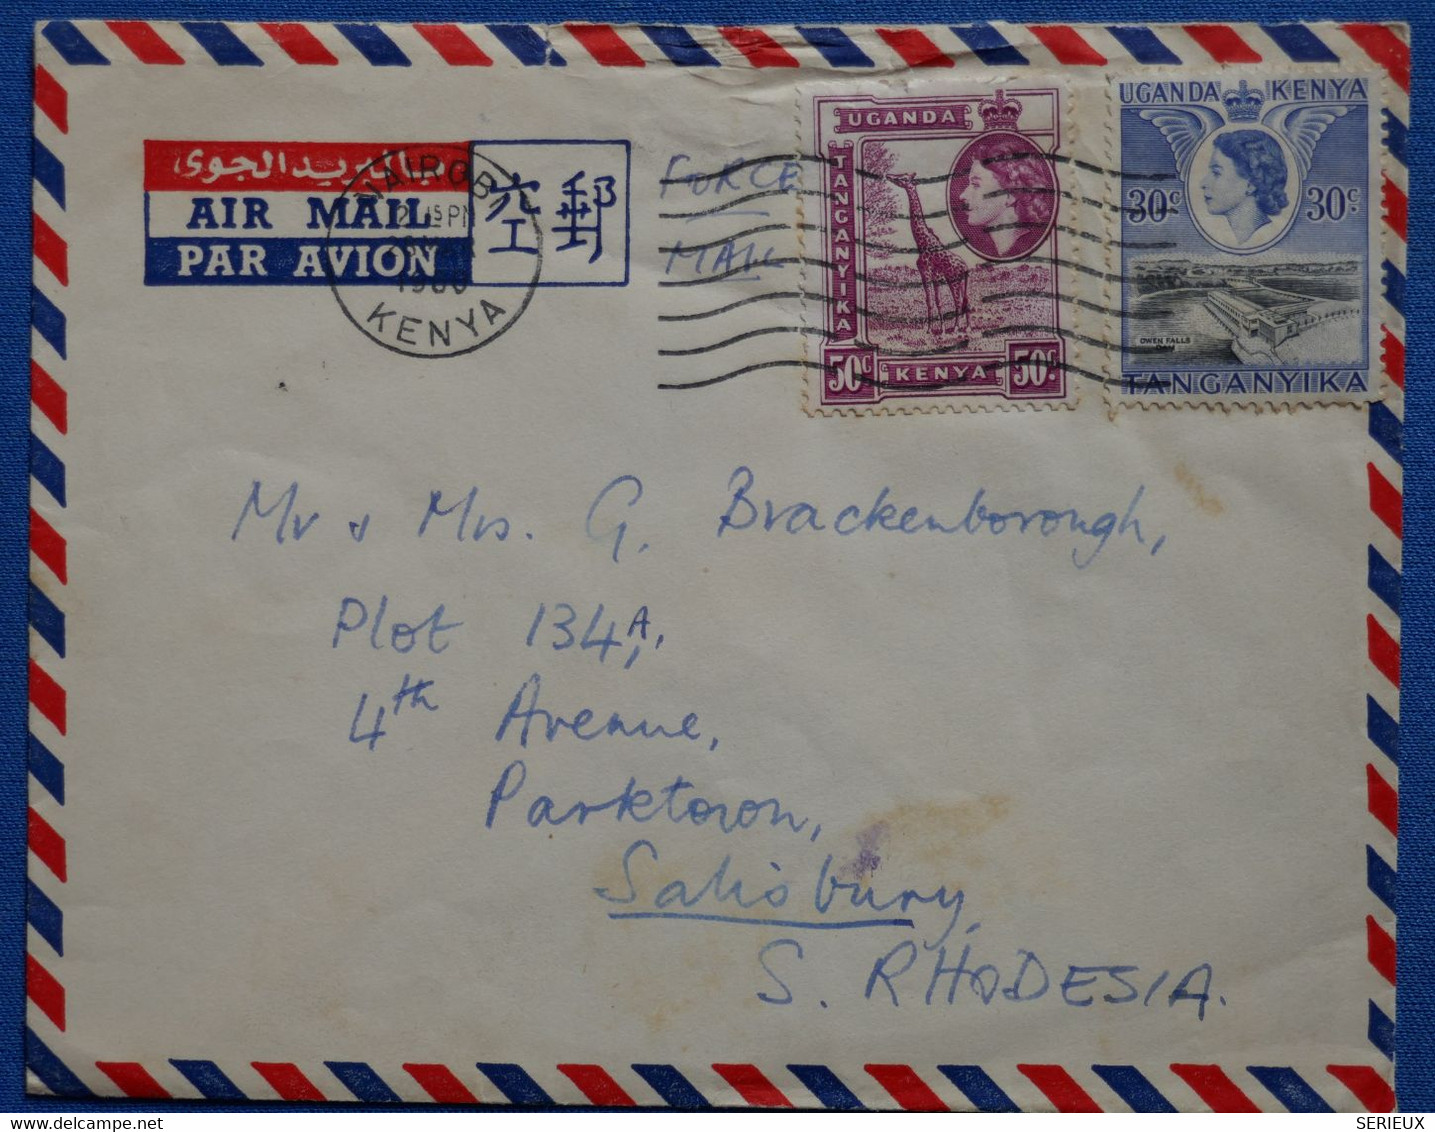 بالبريد الجوي
AIR MAIL
PAR AVION
空郵
NAIROBI
KENYA
FORCE
MAIL
UGANDA
TANGANYIKA
50c KENYA 50c
UGANDA KENYA
30c 30c
OWEN FALLS
DAM
TANGANYIKA
Mr & Mrs. G. Brackenborough,
Plot 134A,
4th Avenue,
Parktown,
Salisbury,
S. RHODESIA.
SERIEUX